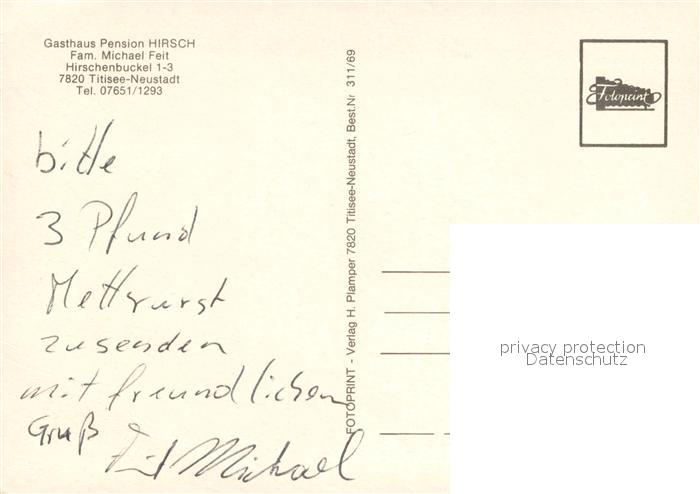 Gasthaus Pension HIRSCH
Fam. Michael Feit
Hirschenbuckel 1-3
7820 Titisee-Neustadt
Tel. 07651/1293
bitte
3 Pfund
Mettwurst
zusenden
mit freundlichem
Gruß
Michael
FOTOPRINT - Verlag H. Plamper 7820 Titisee-Neustadt, Best.Nr 311/69
Fotoprint
privacy protection
Datenschutz